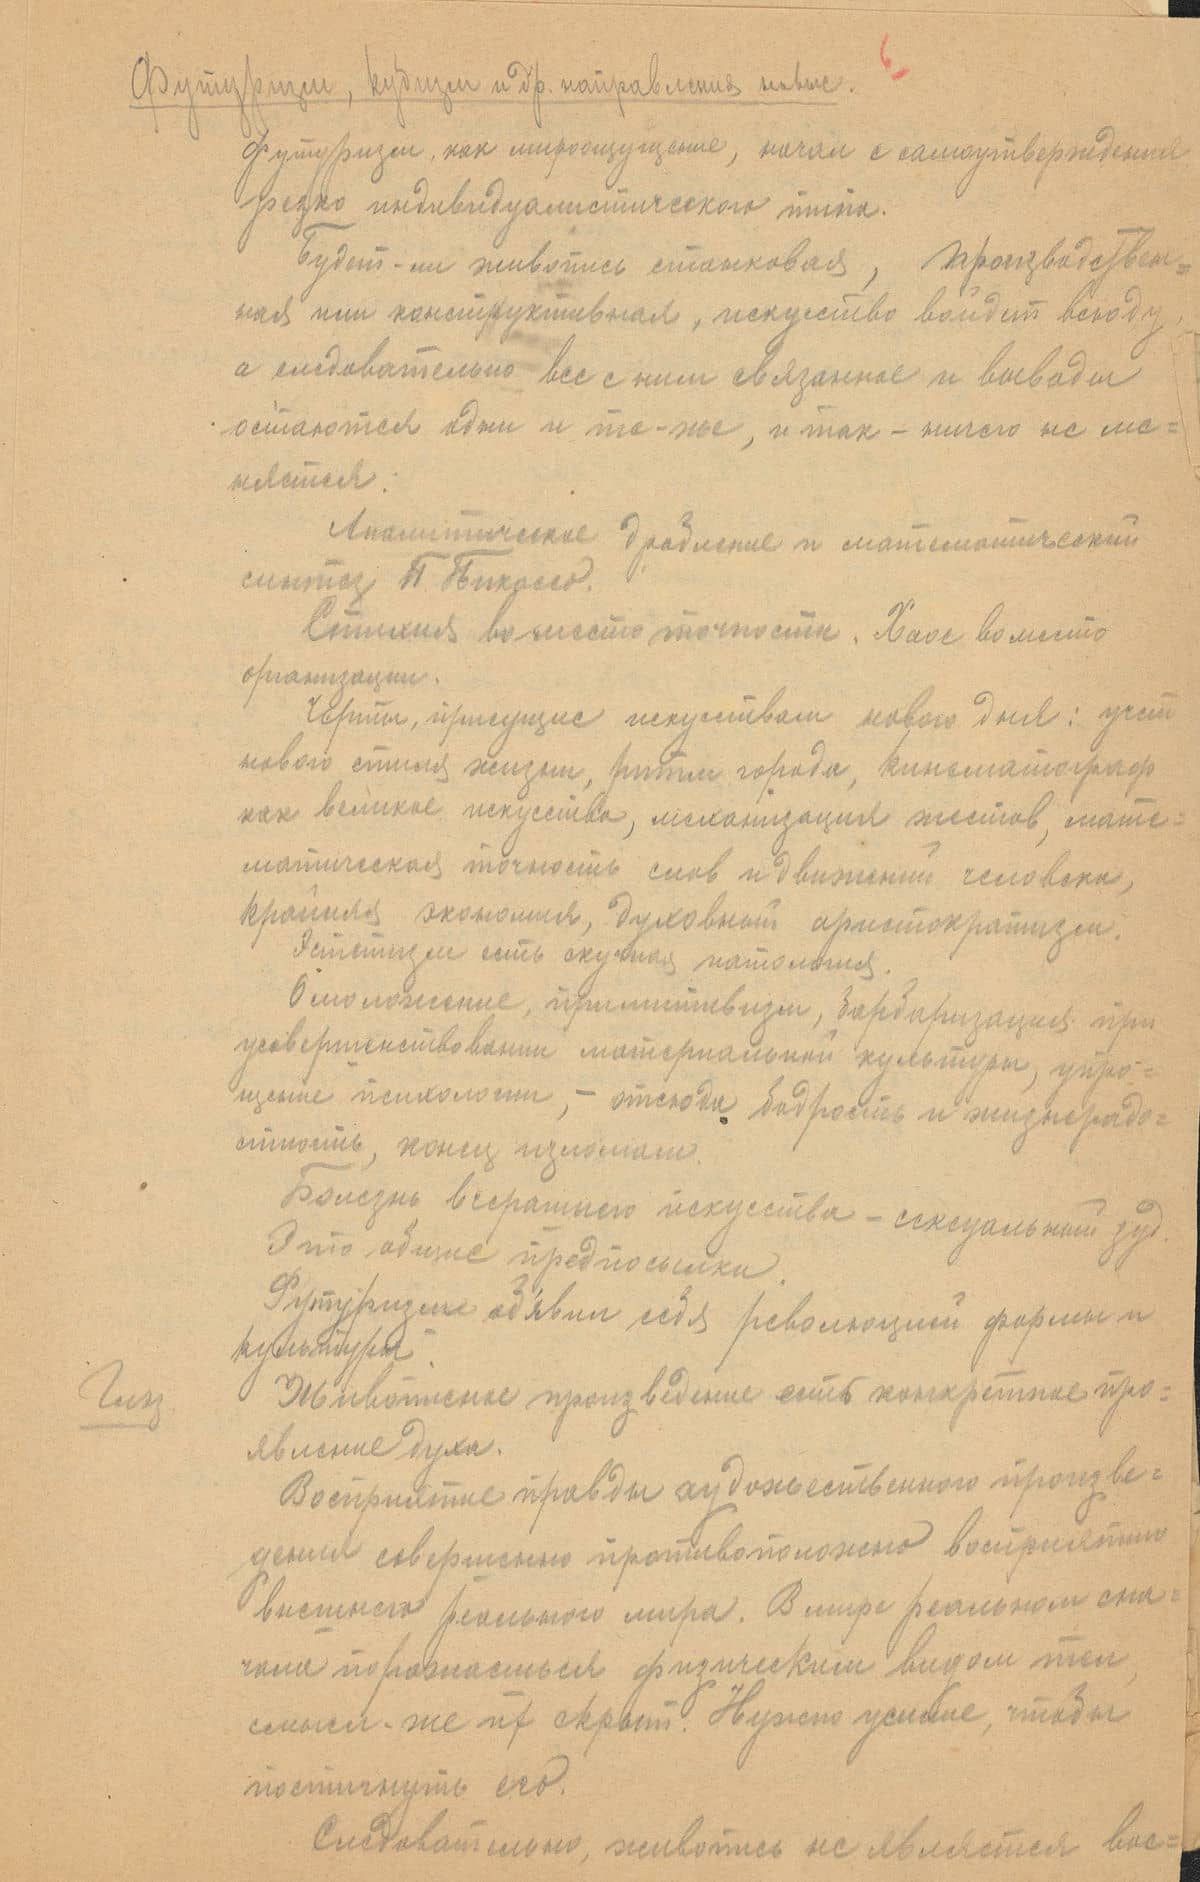 6
Футуризм, кубизм и др. направления новые.
Футуризм, как мироощущение, начал с самоутверждения
резко индивидуалистического типа.
Будет-ли живопись станковая, производствен=
ная или конструктивная, искусство войдет всюду,
а следовательно все с ним связанное и выводы
остаются одни и те-же, и так - ничего не ме=
няется.
Аналитическое дробление и математический
синтез П. Пикассо.
Стихия вместо точности. Хаос вместо
организации.
Черты, присущие искусствам нового дня: учет
нового стиля жизни, ритм города, кинематограф
как великое искусство, механизация жестов, мате=
матическая точность слов и движений человека,
крайняя экономия, духовный аристократизм.
Эстетизм есть скучная патология.
Омоложение, примитивизм, барбаризация при
усовершенствовании материальной культуры, упро=
щение психологии, - отсюда бодрость и жизнерадо=
стность, конец изломам.
Болезнь вчерашнего искусства - сексуальный зуд.
Это общие предпосылки.
Футуризм об'явил себя революцией формы и
культуры.
Глез
Живописное произведение есть конкретное про=
явление духа.
Восприятие правды художественного произве=
дения совершенно противоположно восприятию
внешнего реального мира. В мире реальном сна=
чала поражаешься физическим видом тел,
смысл-же их скрыт. Нужно усилие, чтобы
постигнуть его.
Следовательно, живопись не является вос=